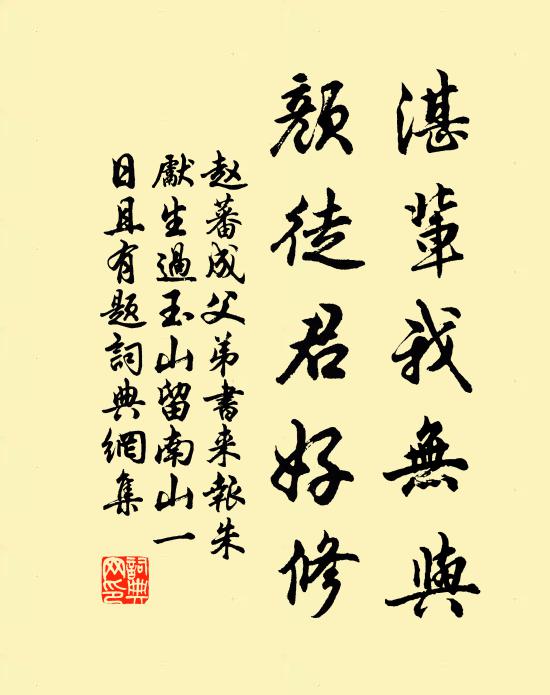 湛輩我無與
顏徒君好修
赵蕃成父弟書来報朱
獻生過玉山留南山一
日且有題詞典網集
詞典网印